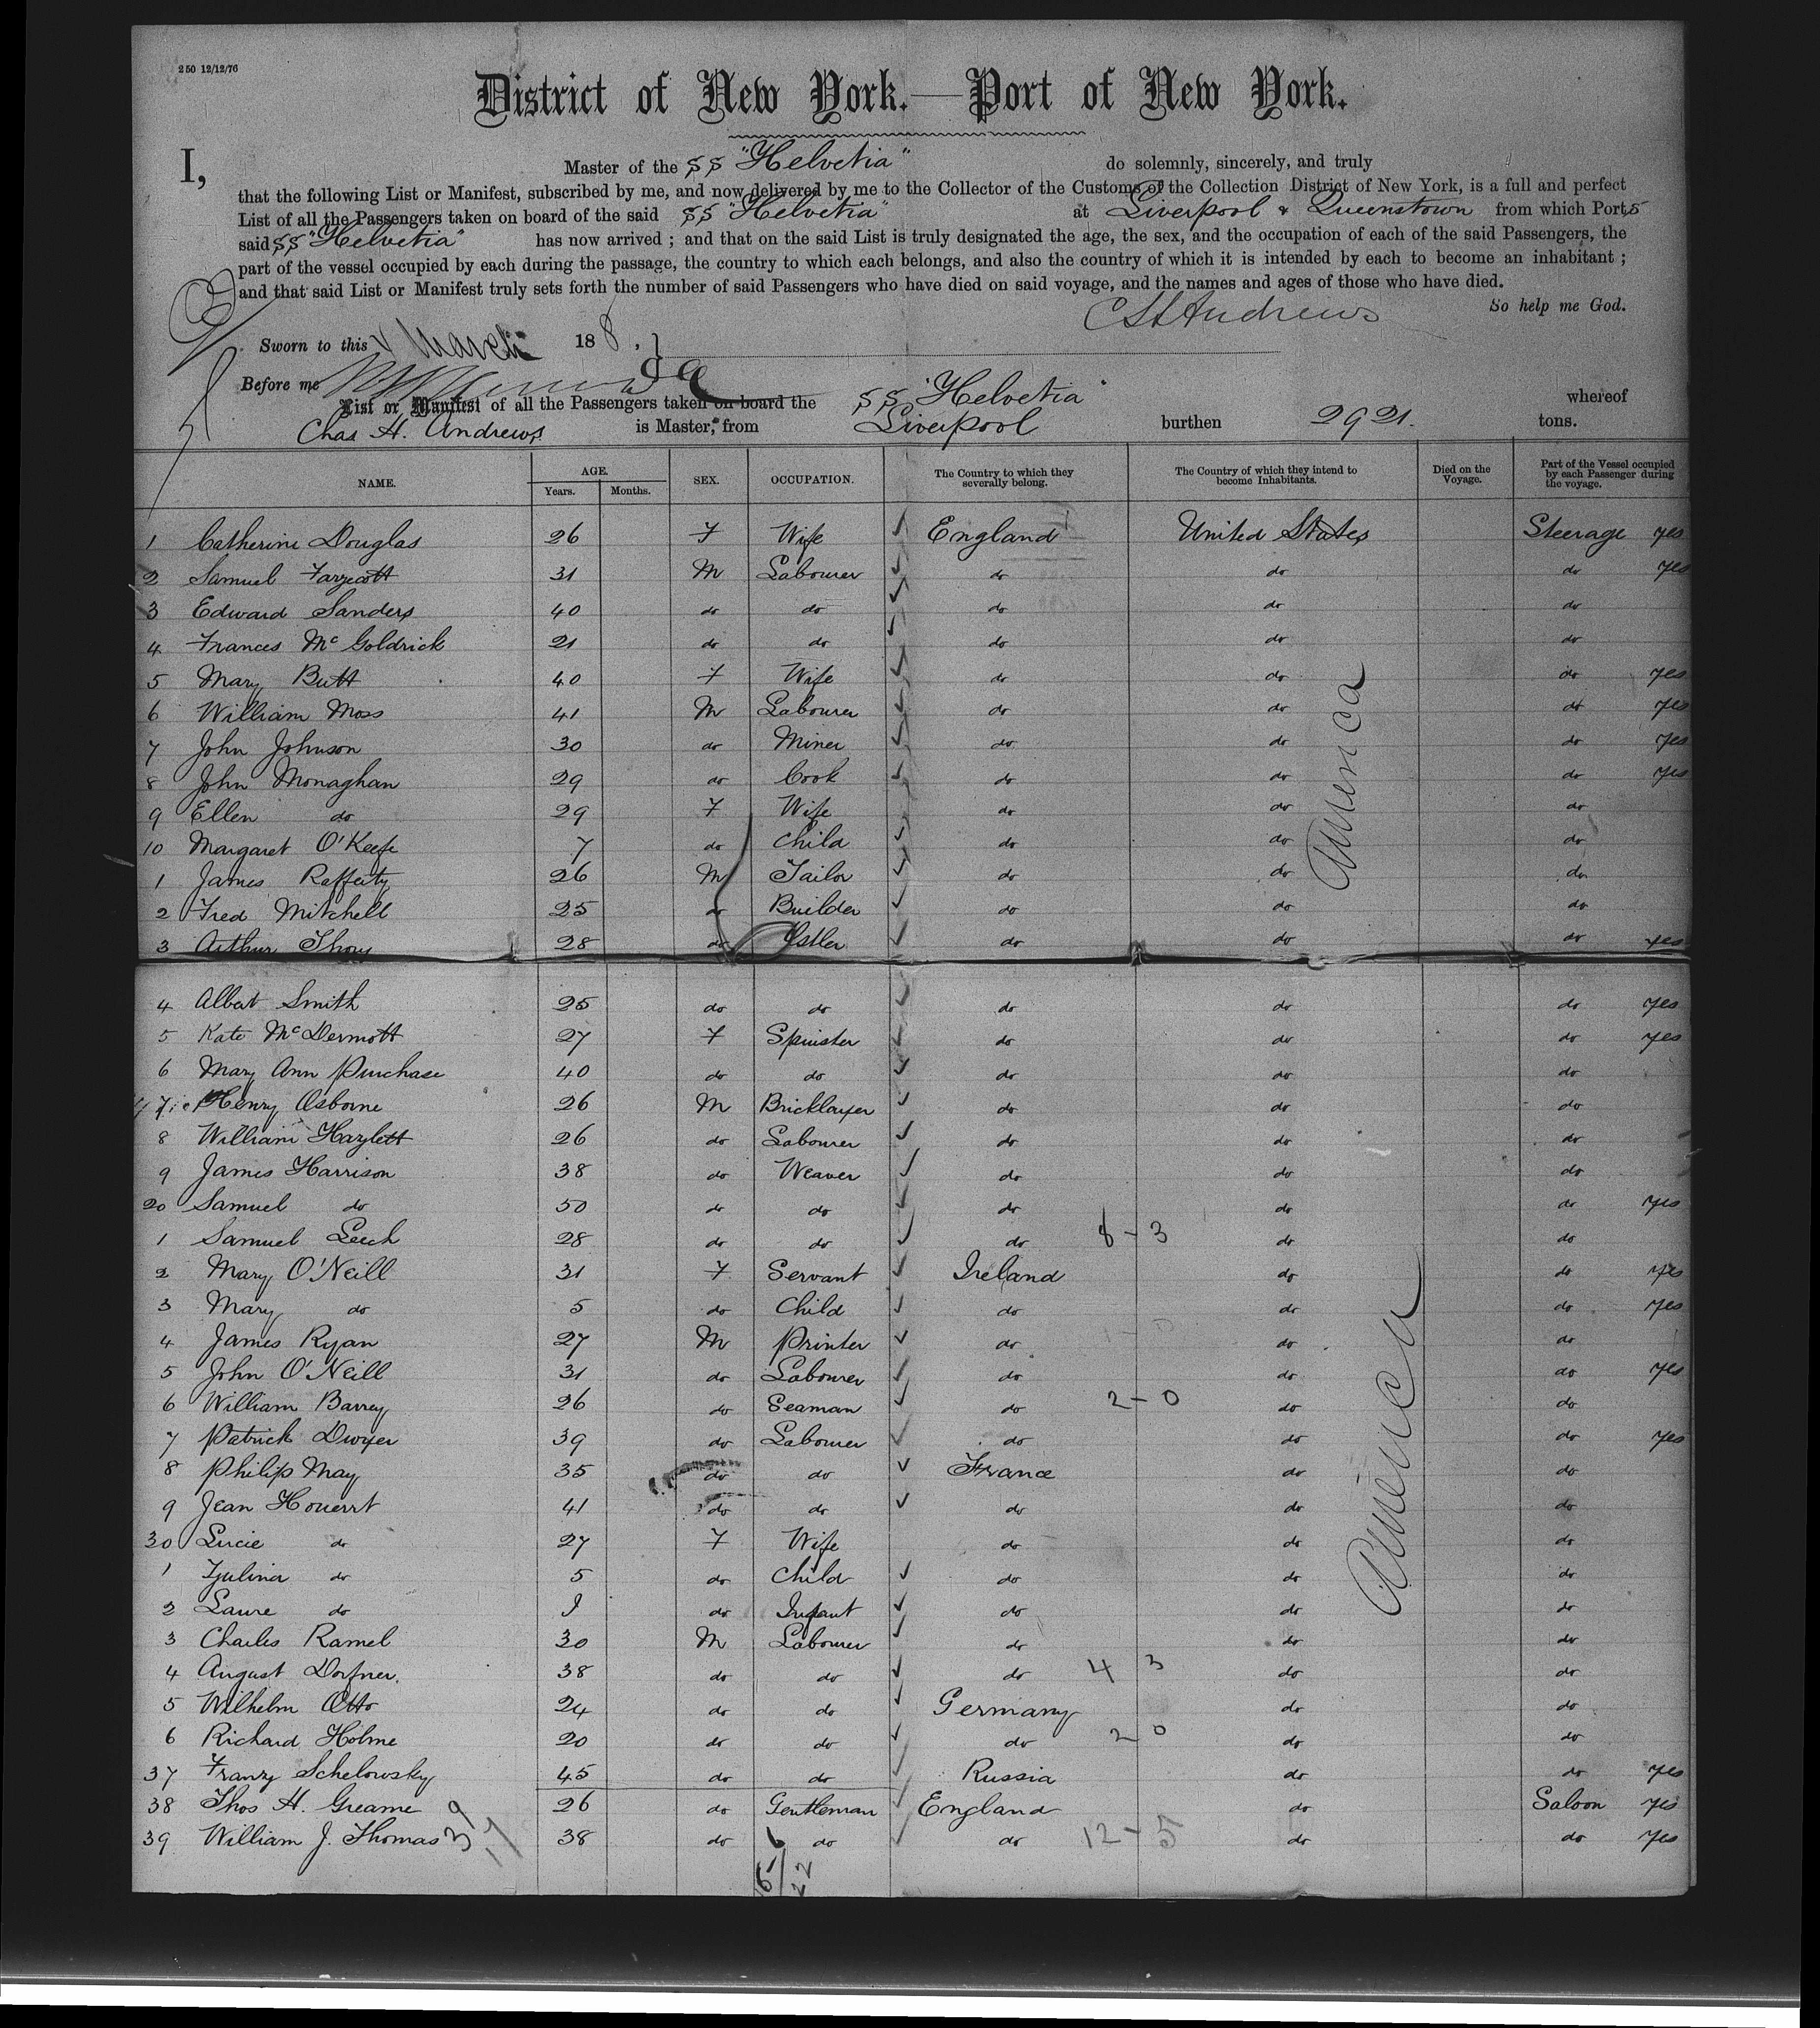 250 12/12/76
District of New York.—Port of New York.
I, Master of the SS "Helvetia" do solemnly, sincerely, and truly
that the following List or Manifest, subscribed by me, and now delivered by me to the Collector of the Customs of the Collection District of New York, is a full and perfect
List of all the Passengers taken on board of the said SS "Helvetia" at Liverpool & Queenstown from which Ports
said SS "Helvetia" has now arrived ; and that on the said List is truly designated the age, the sex, and the occupation of each of the said Passengers, the
part of the vessel occupied by each during the passage, the country to which each belongs, and also the country of which it is intended by each to become an inhabitant ;
and that said List or Manifest truly sets forth the number of said Passengers who have died on said voyage, and the names and ages of those who have died.
So help me God.
Sworn to this March 188 .
Before me
List or Manifest of all the Passengers taken on board the SS "Helvetia" whereof
Chas H. Andrews is Master, from Liverpool burthen 2921. tons.
NAME. AGE. Years. Months. SEX. OCCUPATION. The Country to which they severally belong. The Country of which they intend to become Inhabitants. Died on the Voyage. Part of the Vessel occupied by each Passenger during the voyage.
1 Catherine Douglas 26 F Wife England United States Steerage yes
2 Samuel 31 M Labourer do do do yes
3 Edward Sanders 40 do do do do do
4 Frances McGoldrick 21 do do do do do
5 Mary Butt 40 F Wife do do do yes
6 William Moss 41 M Labourer do do do yes
7 John Johnson 30 do Miner do do do yes
8 John Monaghan 29 do Cook do do do yes
9 Ellen do 29 F Wife do do do
10 Margaret O'Keefe 7 do Child do do do
1 James Rafferty 26 M Tailor do do do
2 Fred Mitchell 25 do Builder do do do
3 Arthur 28 do do do do yes
America
4 Albert Smith 25 do do do do do yes
5 Kate McDermott 27 F Spinster do do do yes
6 Mary Ann Purchase 40 do do do do do
7 Henry Osborne 26 M Bricklayer do do do
8 William Hazlett 26 do Labourer do do do
9 James Harrison 38 do Weaver do do do
20 Samuel do 50 do do do do do yes
1 Samuel Leech 28 do do do 8-3 do do
2 Mary O'Neill 31 F Servant Ireland do do yes
3 Mary do 5 do Child do do do yes
4 James Ryan 27 M Printer do do do
5 John O'Neill 31 do Labourer do do do yes
6 William Barrey 26 do Seaman do 2-0 do do
7 Patrick Dwyer 39 do Labourer do do do yes
8 Philip May 35 do do France do do
9 Jean Houerrt 41 do do do do do
30 Lucie do 27 F Wife do do do
1 do 5 do Child do do do
2 Laure do do Infant do do do
3 Charles Ramel 30 M Labourer do do do
4 August Dorfner. 38 do do do 4 3 do do
5 Wilhelm Otto 24 do do Germany do do
6 Richard Holme 20 do do do 2 0 do do
37 Franz Schelowsky 45 do do Russia do do yes
38 Thos H. Greame 26 do Gentleman England do Saloon yes
39 William J. Thomas 38 do do do 12-5 do do yes
America
39
17